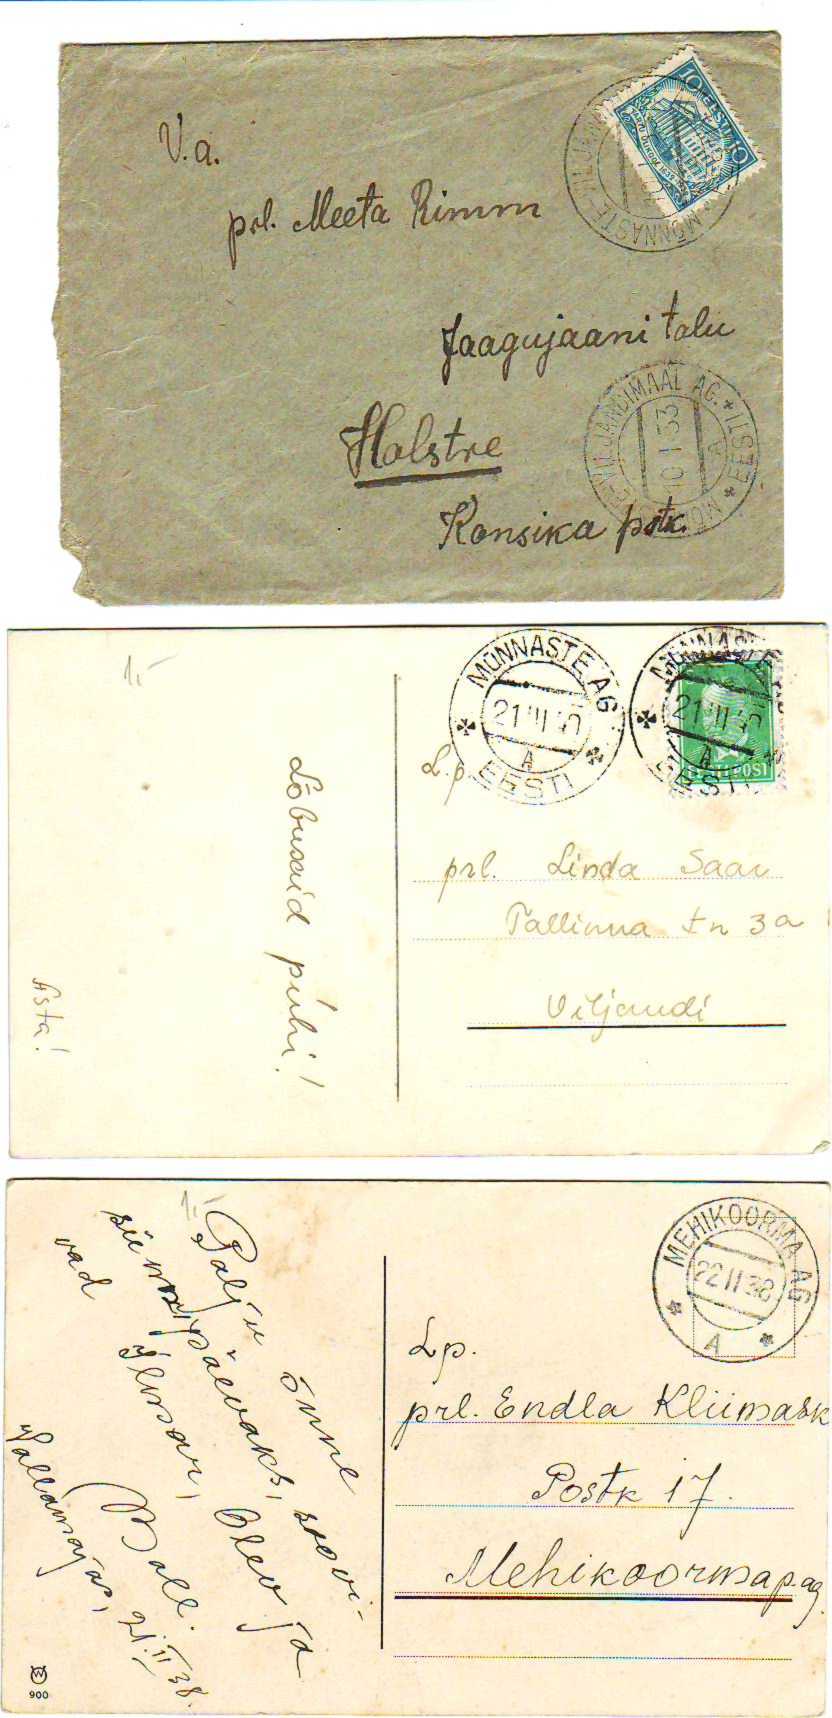 V.a.
prl. Meeta Rimm
Jaagujaani talu
Halstre
Konsika pstk.
10 EESTI 10
MÕNNASTE-VILJANDIMAAL AG. EESTI
10 I 33
A
1.-
MÕNNASTE AG
21 III 40
A
EESTI
MÕNNASTE AG
21 III 40
A
EESTI
EESTI POST
L.p
prl. Linda Saar
Tallinna tn 3a
Viljandi
Lõbusaid pühi!
Asta!
1.-
Palju õnne
sünnipäevaks, soovi-
vad Ilmar, Olev ja
Vallamajas, 21.II 38.
MEHIKOORMA AG
22 II 38
A
Lp.
prl. Endla Kliimask
Postk 17.
Mehikoorma p. ag.
W
900